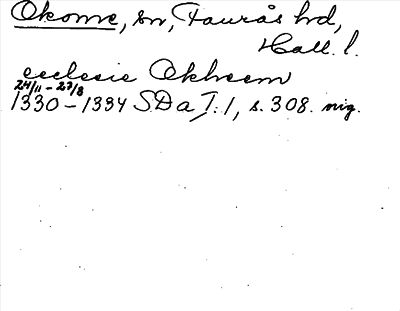 Okome, sn, Faurås hd,
Hall. l.
ecclesie Okheem
24/11 - 23/8
1330-1334 SDa I:1, s. 308. nig.